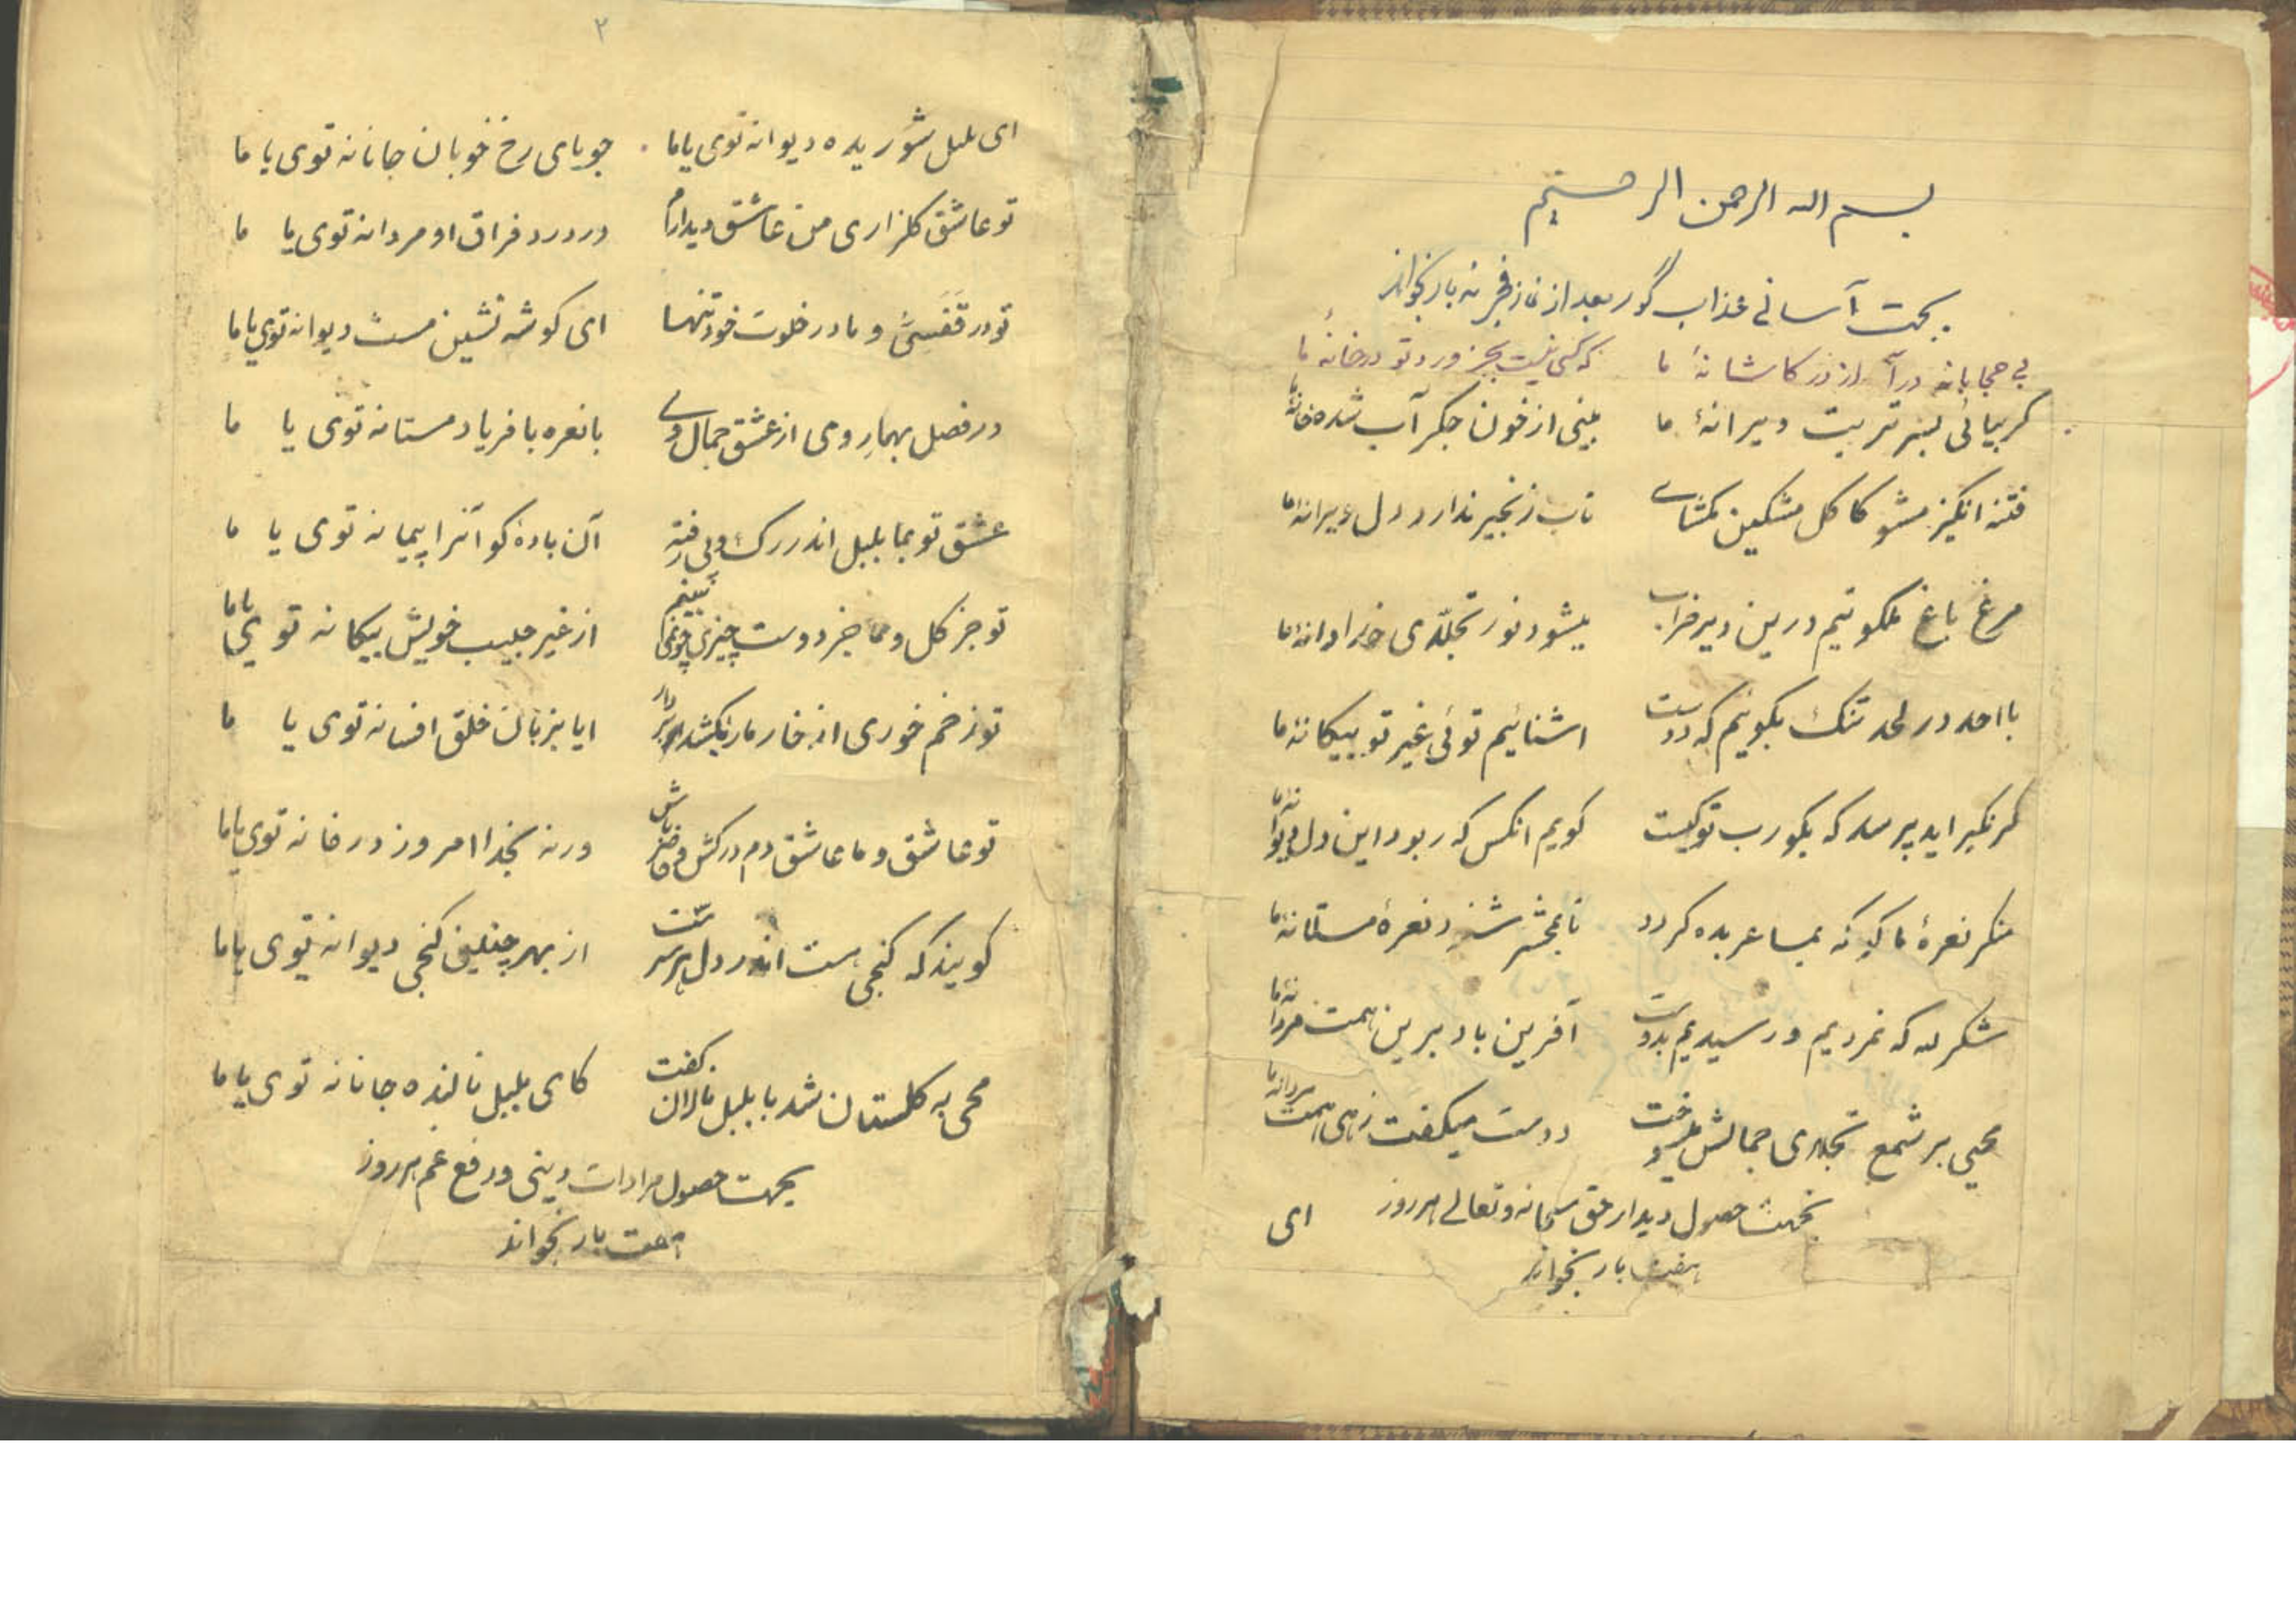 بسم الله الرحمن الرحیم
بجهت آسانی عذاب گور بعد از نماز فجر نه بار بخواند
بی حجابانه درآ از در کاشانهٔ ما که کسی نیست بجز ورد تو در خانهٔ ما
کر بیائی بسر تربت ویرانهٔ ما بینی از خون جکر آب شده خانهٔ ما
فتنه انکیز مشو کاکل مشکین مکشای تاب زنجیر ندارد دل دیوانهٔ ما
مرغ باغ ملکوتیم درین دیر خراب میشود نور تجلّای خدا دانهٔ ما
با احد در لحد تنک بکوئیم که دوست اشنائیم توئی غیر تو بیکانهٔ ما
کر نکیر اید پرسد که بکو رب تو کیست کویم انکس که ربود این دل دیوانهٔ ما
منکر نعرهٔ ما کو که بما عربده کرد تا بمحشر شنود نعرهٔ مستانهٔ ما
شکر لله که نمردیم و رسیدیم بدوست آفرین باد برین همت مردانهٔ ما
محیی بر شمع تجلای جمالش میسوخت دوست میکفت زهی همت مردانهٔ ما
بجهت حصول دیدار حق سبحانه و تعالی هر روز
هفت بار بخواند
ای
۲
ای بلبل شوریده دیوانه توی یا ما جویای رخ خوبان جانانه توی یا ما
تو عاشق کلزاری من عاشق دیدارم در درد فراق او مردانه توی یا ما
تو در قفسی و ما در خلوت خود تنها ای کوشه نشین مست دیوانه توی یا ما
در فصل بهار روی از عشق جمال وی با نعره با فریاد مستانه توی یا ما
عشق تو بما بلبل اندر رک و پی رفته آن باده کو آنرا پیمانه توی یا ما
تو جز کل و ما جز دوست چیزی نبینم از غیر حبیب خویش بیکانه توی یا ما
تو زخم خوری از خار ما را بکشد ایا بزبان خلق افسانه توی یا ما
تو عاشق و ما عاشق دم درکش و خامش ورنه بخدا امروز در خانه توی یا ما
کویند که کنجی هست اندر دل هر از بهر چنین کنجی دیوانه توی یا ما
محی به کلستان شد با بلبل نالان کفت کای بلبل نالنده جانانه توی یا ما
بجهت حصول مرادات دینی و رفع غم هر روز
هفت بار بخواند